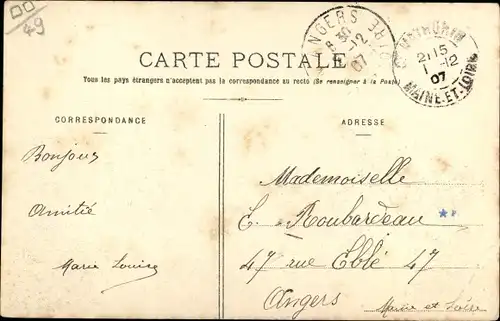 49
ANGERS GARE
8 30
1 -12
07
ST MATHURIN
21 15
1 -12
07
MAINE-ET-LOIRE
CARTE POSTALE
Tous les pays étrangers n'acceptent pas la correspondance au recto (Se renseigner à la Poste)
CORRESPONDANCE
ADRESSE
Bonjour
Amitié
Marie Louise
Mademoiselle
E. Roubardeau
47 rue Eblé 47
Angers
Maine et Loire